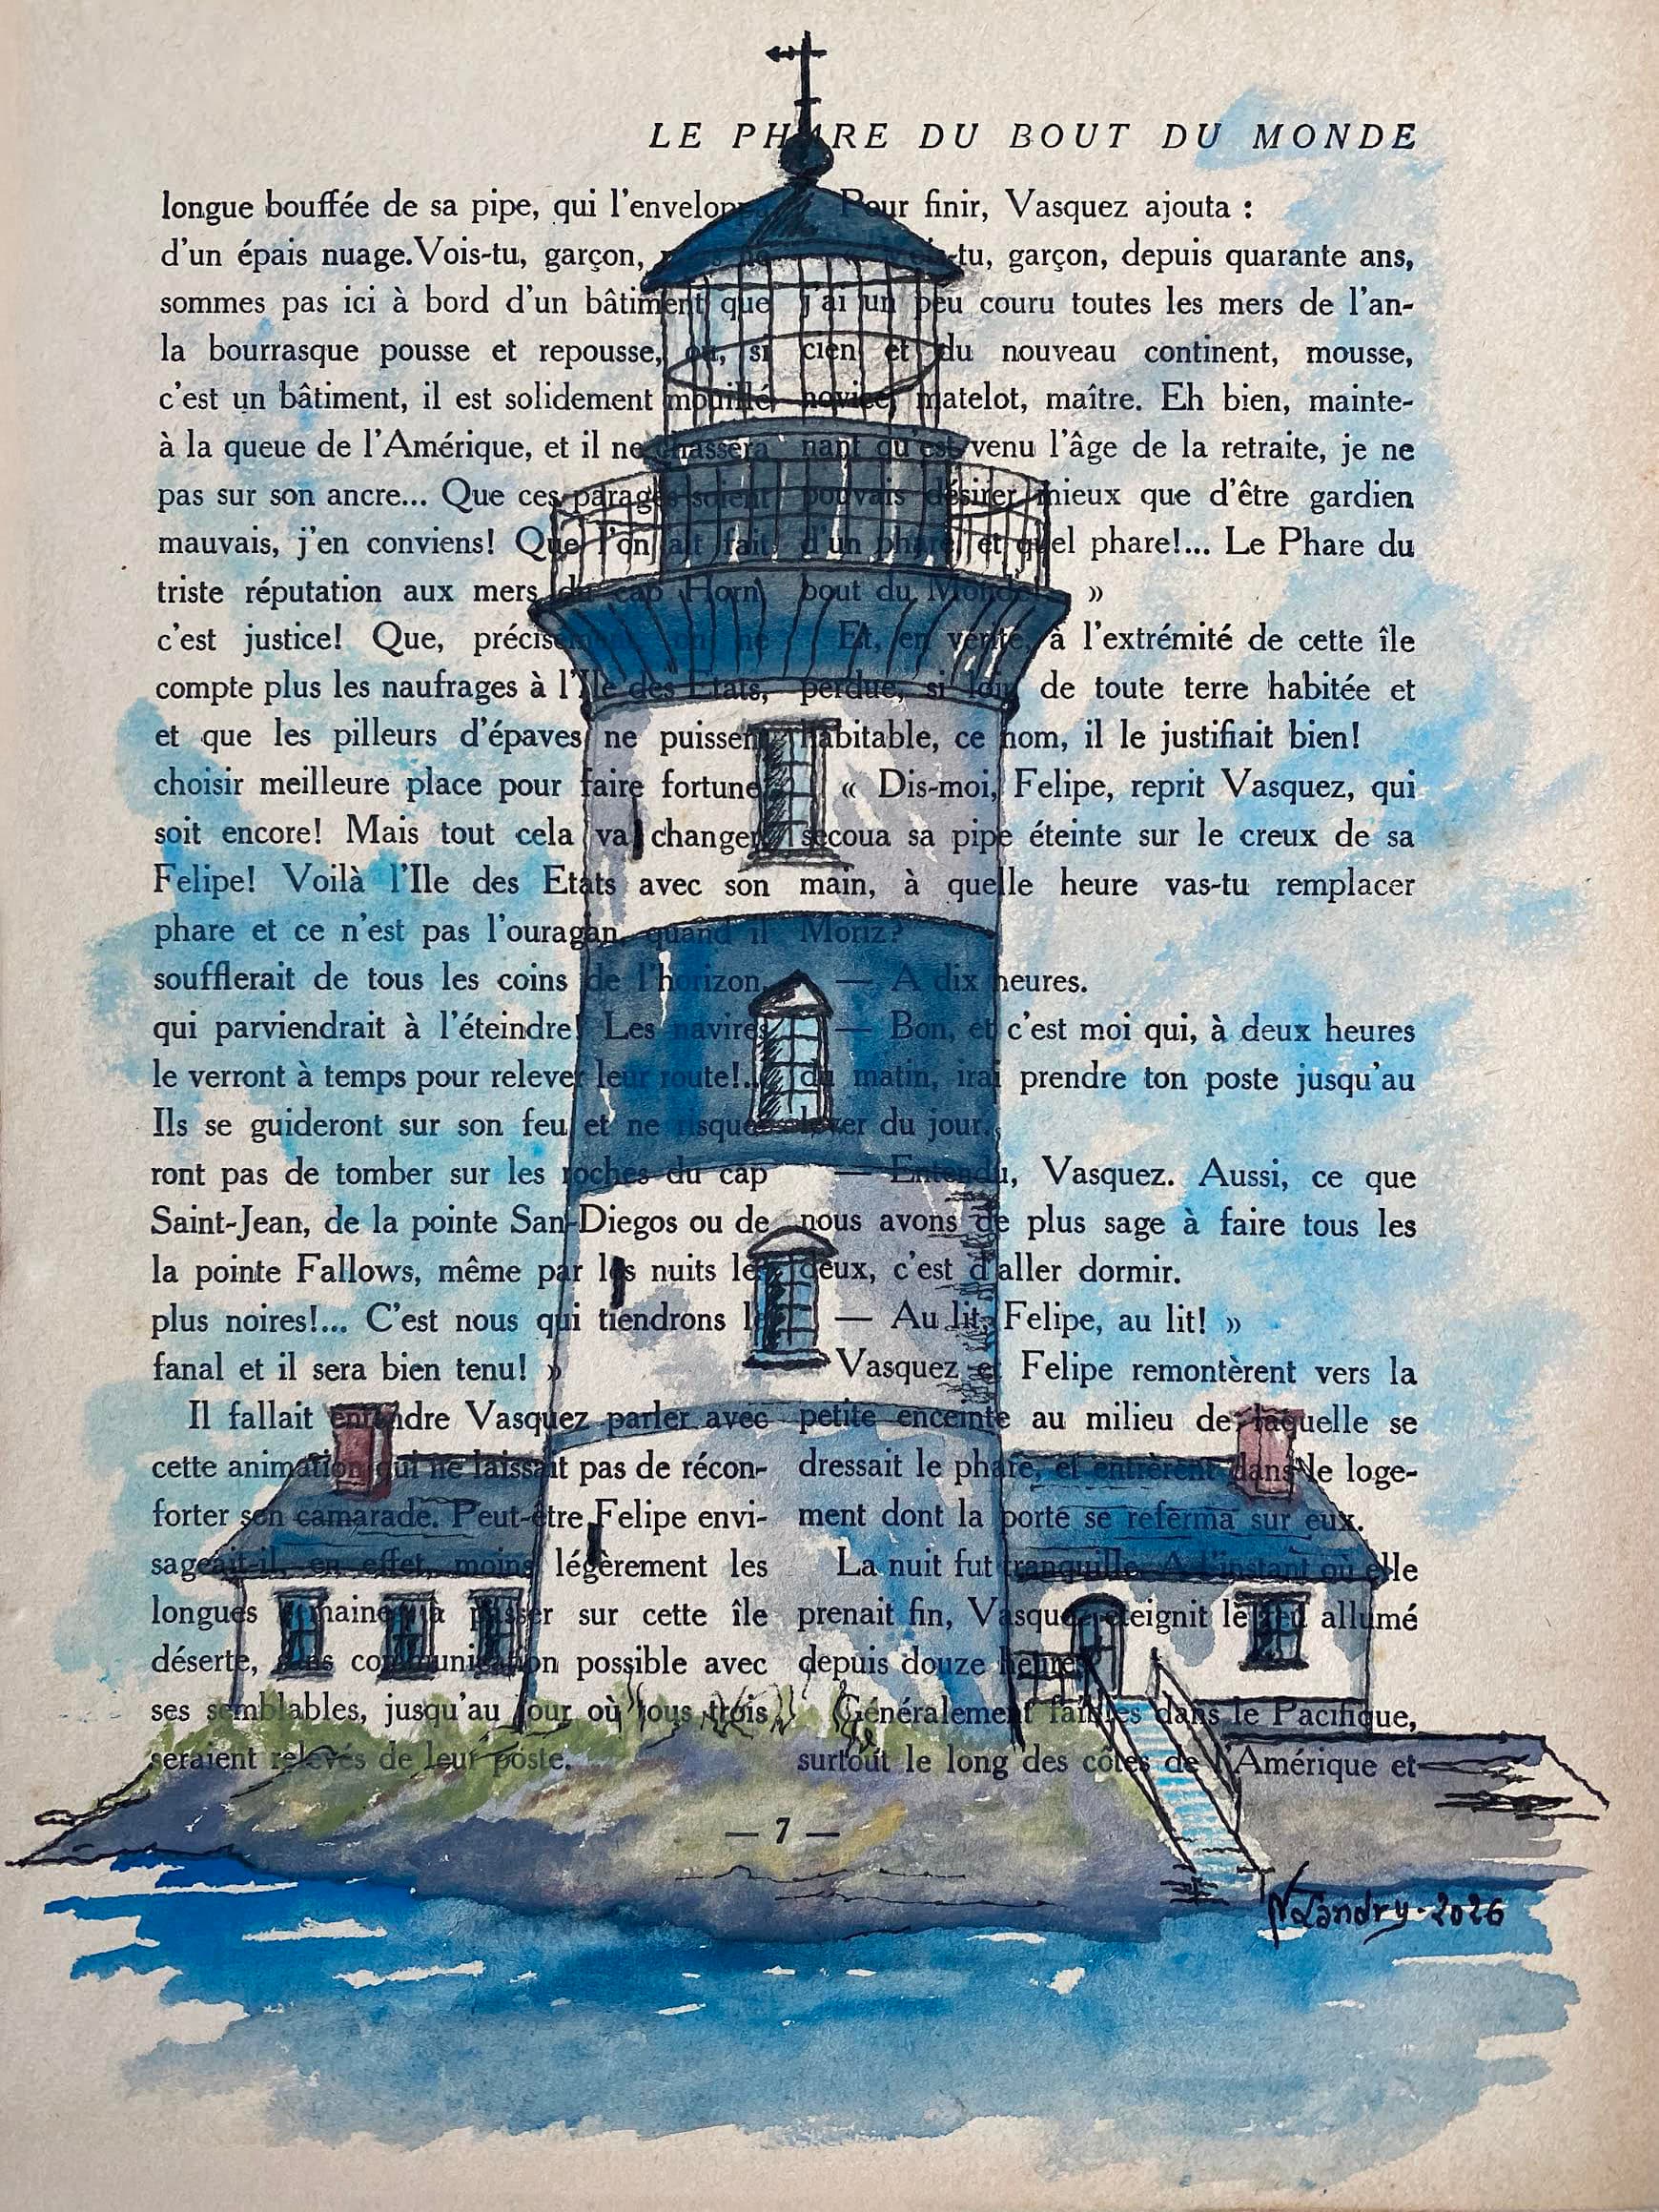 LE PHARE DU BOUT DU MONDE
longue bouffée de sa pipe, qui l'envelopp
d'un épais nuage. Vois-tu, garçon,
sommes pas ici à bord d'un bâtiment que
la bourrasque pousse et repousse, ou, si
c'est un bâtiment, il est solidement mouillé
à la queue de l'Amérique, et il ne chassera
pas sur son ancre... Que ces parages soient
mauvais, j'en conviens! Que l'on ait fait
triste réputation aux mers du cap Horn,
c'est justice! Que, précisément, on ne
compte plus les naufrages à l'Ile des Etats,
et que les pilleurs d'épaves ne puissent
choisir meilleure place pour faire fortune
soit encore! Mais tout cela va changer
Felipe! Voilà l'Ile des Etats avec son
phare et ce n'est pas l'ouragan, quand il
soufflerait de tous les coins de l'horizon,
qui parviendrait à l'éteindre! Les navires
le verront à temps pour relever leur route!..
Ils se guideront sur son feu et ne risque-
ront pas de tomber sur les roches du cap
Saint-Jean, de la pointe San-Diegos ou de
la pointe Fallows, même par les nuits les
plus noires!... C'est nous qui tiendrons le
fanal et il sera bien tenu! »
Il fallait entendre Vasquez parler avec
cette animation qui ne laissait pas de récon-
forter son camarade. Peut-être Felipe envi-
sageait-il, en effet, moins légèrement les
longues semaines à passer sur cette île
déserte, sans communication possible avec
ses semblables, jusqu'au jour où tous trois
seraient relevés de leur poste.
Pour finir, Vasquez ajouta :
-tu, garçon, depuis quarante ans,
j'ai un peu couru toutes les mers de l'an-
cien et du nouveau continent, mousse,
novice, matelot, maître. Eh bien, mainte-
nant qu'est venu l'âge de la retraite, je ne
pouvais désirer mieux que d'être gardien
d'un phare, et quel phare!... Le Phare du
bout du Monde! »
Et, en vérité, à l'extrémité de cette île
perdue, si loin de toute terre habitée et
habitable, ce nom, il le justifiait bien!
« Dis-moi, Felipe, reprit Vasquez, qui
secoua sa pipe éteinte sur le creux de sa
main, à quelle heure vas-tu remplacer
Moriz?
— A dix heures.
— Bon, et c'est moi qui, à deux heures
du matin, irai prendre ton poste jusqu'au
lever du jour.
— Entendu, Vasquez. Aussi, ce que
nous avons de plus sage à faire tous les
deux, c'est d'aller dormir.
— Au lit, Felipe, au lit! »
Vasquez et Felipe remontèrent vers la
petite enceinte au milieu de laquelle se
dressait le phare, et entrèrent dans le loge-
ment dont la porte se referma sur eux.
La nuit fut tranquille. A l'instant où elle
prenait fin, Vasquez éteignit le feu allumé
depuis douze heures.
Généralement faibles dans le Pacifique,
surtout le long des côtes de l'Amérique et
— 7 —
N Landry-2026